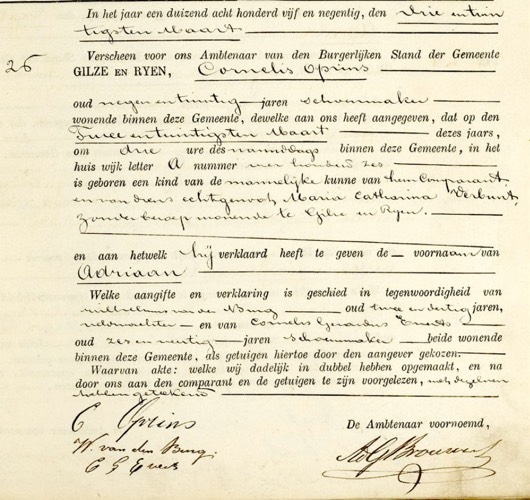 In het jaar een duizend acht honderd vijf en negentig, den drie en twin
tigsten Maart
26
Verscheen voor ons Ambtenaar van den Burgerlijken Stand der Gemeente
GILZE EN RYEN, Cornelis Oprins
oud negen en twintig jaren schoenmaker
wonende binnen deze Gemeente, dewelke aan ons heeft aangegeven, dat op den
Twee en twintigsten Maart dezes jaars,
om drie ure des namiddags binnen deze Gemeente, in het
huis wijk letter A nummer vier honderd zes
is geboren een kind van de mannelijke kunne van hem Comparant
en van diens echtgenoote Maria Catharina Verbunt
zonder beroep wonende te Gilze en Ryen.
en aan hetwelk hij verklaard heeft te geven de voornaam van
Adriaan
Welke aangifte en verklaring is geschied in tegenwoordigheid van
Wilhelmus van den Burg oud twee en dertig jaren,
veldwachter en van Cornelis Gerardus
oud zes en veertig jaren schoenmaker beide wonende
binnen deze Gemeente, als getuigen hiertoe door den aangever gekozen.
Waarvan akte: welke wij dadelijk in dubbel hebben opgemaakt, en na
door ons aan den comparant en de getuigen te zijn voorgelezen, met dezelven
hebben geteekend
C Oprins
De Ambtenaar voornoemd,
W. van den Burg.
C G